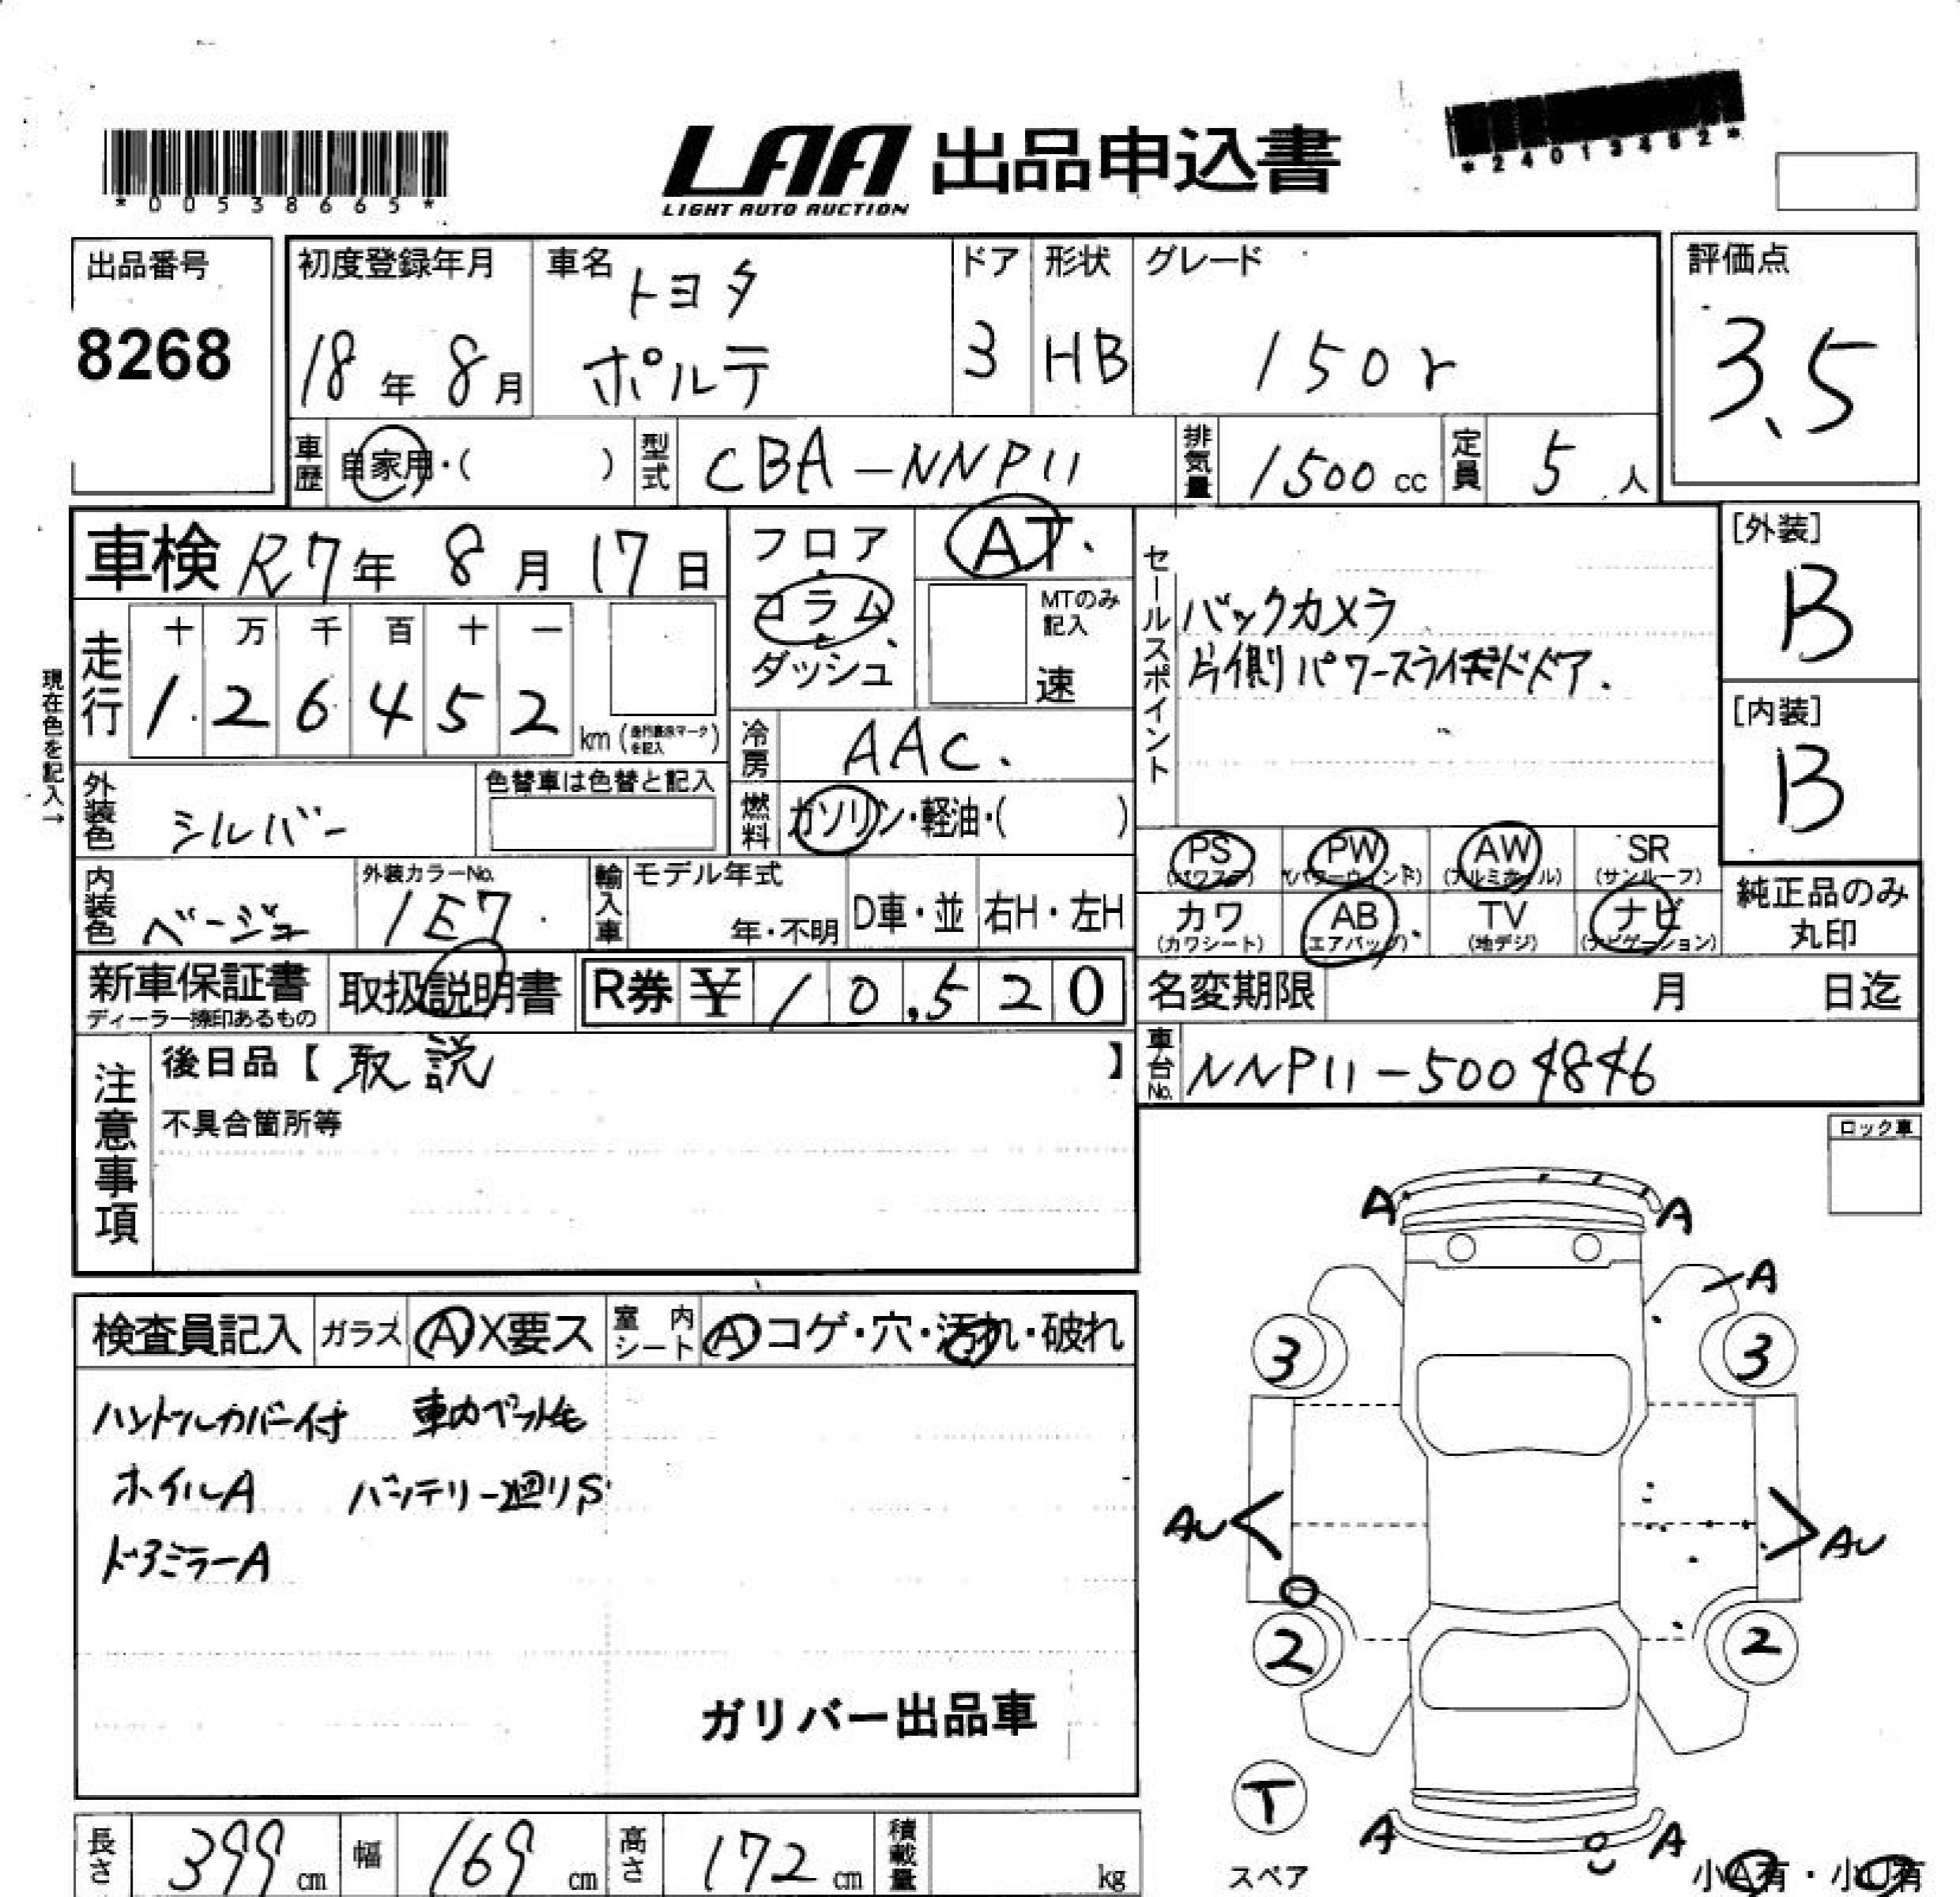 *00538665*
LAA 出品申込書
LIGHT AUTO AUCTION
*24013482*
出品番号
8268
初度登録年月
18年8月
車名
トヨタ
ポルテ
ドア
3
形状
HB
グレード
150r
評価点
3.5
車歴 自家用・( )
型式 CBA-NNP11
排気量 1500cc
定員 5人
車検 R7年8月17日
フロア
コラム
ダッシュ
AT
MTのみ記入
速
走行
十 万 千 百 十 一
1 2 6 4 5 2 km(走行表示マークを記入)
現在色を記入→
冷房 AAC.
燃料 ガソリン・軽油・( )
外装色 シルバー
色替車は色替と記入
内装色 ベージュ
外装カラーNo.
1E7
輸入車
モデル年式
年・不明
D車・並
右H・左H
セールスポイント
バックカメラ
片側パワースライドドア.
[外装]
B
[内装]
B
PS (パワステ)
PW (パワーウィンド)
AW (アルミホイール)
SR (サンルーフ)
カワ (カワシート)
AB (エアバッグ)
TV (地デジ)
ナビ (ナビゲーション)
純正品のみ
丸印
新車保証書
ディーラー捺印あるもの
取扱説明書
R券 ¥ 10,520
名変期限 月 日迄
車台No. NNP11-5004846
注意事項
後日品【取説】
不具合箇所等
ロック車
検査員記入
ガラス A X要ス
室内シート A コゲ・穴・汚れ・破れ
ハンドルカバー付 車内ペット毛
ホイルA バッテリー廻りS
ドアミラーA
ガリバー出品車
A A
A
3 3
AU AU
2 2
T
スペア
A A
小A有・小U有
長さ 399cm
幅 169cm
高さ 172cm
積載量 kg